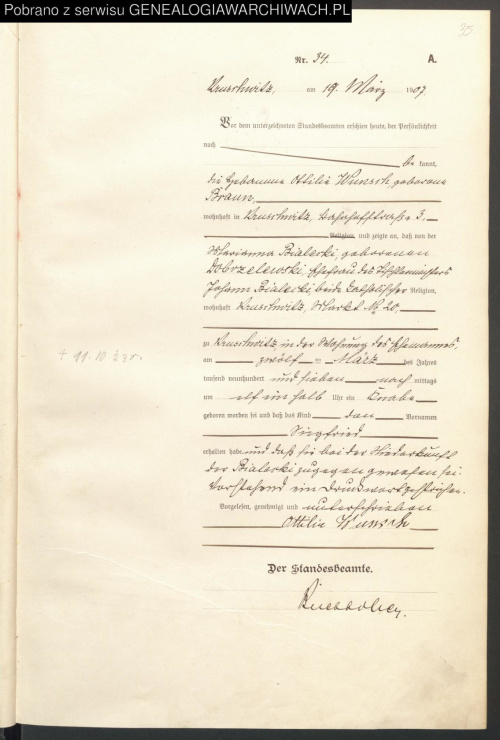 Pobrano z serwisu GENEALOGIAWARCHIWACH.PL
35
Nr. 34. A.
Kruschwitz, am 19. März 1907
Vor dem unterzeichneten Standesbeamten erschien heute, der Persönlichkeit
nach
be kannt,
die Hebamme Ottilie Wunsch, geborene
Braun,
wohnhaft in Kruschwitz, Bahnhofstrasse 3,
Religion, und zeigte an, daß von der
Marianna Bialecki, geborenen
Dobrzelewski, Ehefrau des Tischlermeisters
Johann Bialecki beide katholischer Religion,
wohnhaft Kruschwitz, Markt No 20,
zu Kruschwitz in der Wohnung des Ehemannes,
am zwölf ten März des Jahres
tausend neunhundert und sieben nach mittags
um elf ein halb Uhr ein Knabe
geboren worden sei und daß das Kind den Vornamen
Siegfried
erhalten habe und daß sie bei der Niederkunft
der Bialecki zugegen gewesen sei.
Vorstehend ein Druckwort gestrichen.
Vorgelesen, genehmigt und unterschrieben
Ottilie Wunsch
Der Standesbeamte.